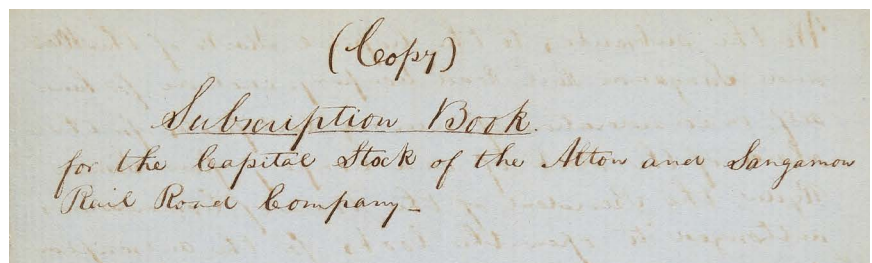 (Copy)
Subscription Book.
for the Capital Stock of the Alton and Sangamon
Rail Road Company_